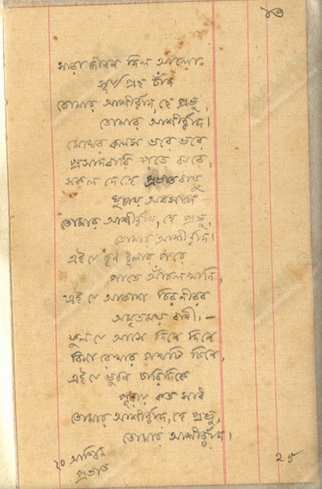 সারা জীবন দিল আলো
সূর্য্য গ্রহ চাঁদ
তোমার আশীর্ব্বাদ হে প্রভু,
তোমার আশীর্ব্বাদ।
মেঘের কলস ভরে ভরে
প্রসাদবারি পড়ে ঝরে,
সকল দেহে প্রভাতবায়ু
ঘুচায় অবসাদ
তোমার আশীর্ব্বাদ, হে প্রভু,
তোমার আশীর্ব্বাদ।
এই যে তৃণ ধূলার পরে
পাতে আঁচলখানি,
এই যে আকাশ চিরনীরব
অমৃতময় বাণী,—
ফুল যে আসে দিনে দিনে
বিনা রেখার পথটি চিনে,
এই যে ভুবন চারিদিকে
পূরায় কত সাধ
তোমার আশীর্ব্বাদ, হে প্রভু,
তোমার আশীর্ব্বাদ।
২০ আশ্বিন
প্রভাত
25